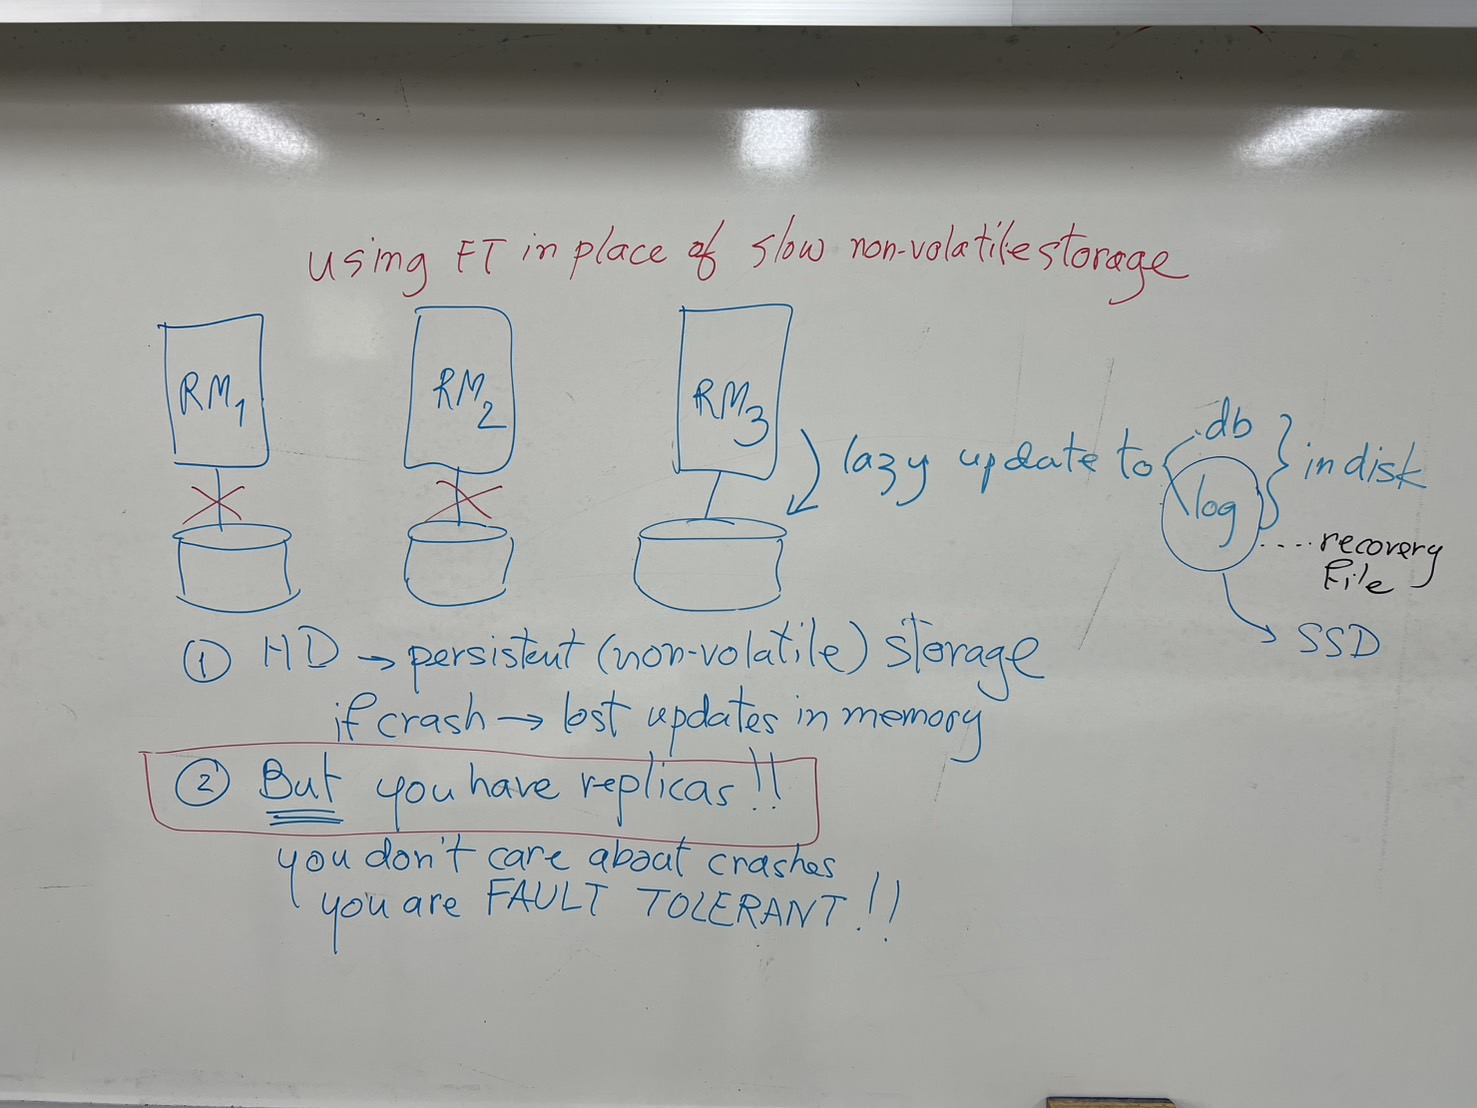 using FT in place of slow non-volatile storage
RM1
RM2
RM3
lazy update to
db
log
in disk
....recovery
File
SSD
① HD → persistent (non-volatile) storage
if crash → lost updates in memory
② But you have replicas!!
you don't care about crashes
you are FAULT TOLERANT!!